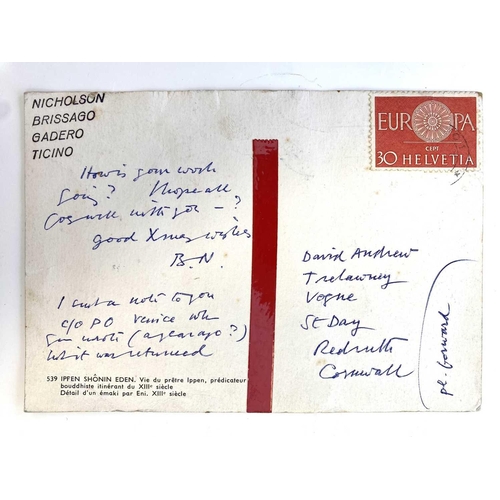 NICHOLSON
BRISSAGO
GADERO
TICINO
EUROPA
CEPT
30 HELVETIA
How is your work
going? I hope all
Goes well with you - ?
good Xmas wishes
B.N.
I sent a note to you
c/o PO Venice when
you wrote (a year ago?)
but it was returned
David Andrew
Trelawney
Vogue
St Day
Redruth
Cornwall
pl. forward
539 IPPEN SHÔNIN EDEN. Vie du prêtre Ippen, prédicateur
bouddhiste itinérant du XIIIe siècle
Détail d'un émaki par Eni. XIIIe siècle